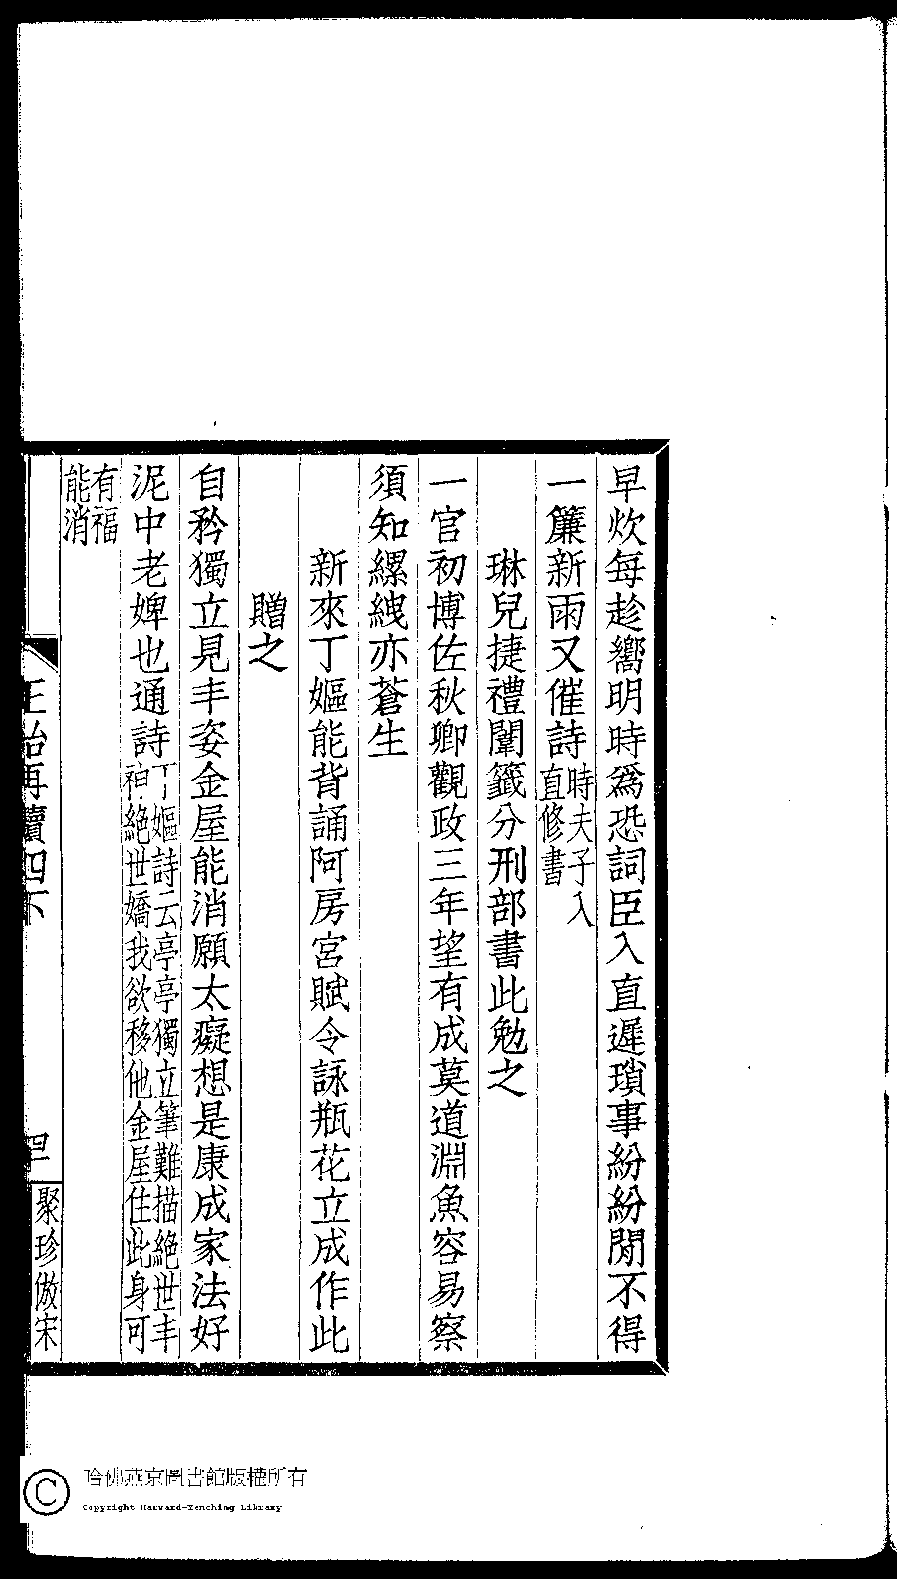 早炊每趁嚮明時爲恐詞臣入直遲瑣事紛紛閒不得
一簾新雨又催詩時夫子入直修書
琳兒捷禮闈籤分刑部書此勉之
一官初博佐秋卿觀政三年望有成莫道淵魚容易察
須知縲絏亦蒼生
新來丁嫗能背誦阿房宮賦令詠瓶花立成作此
贈之
自矜獨立見丰姿金屋能消願太癡想是康成家法好
泥中老婢也通詩丁嫗詩云亭亭獨立筆難描絕世丰神絕世嬌我欲移他金屋住此身可
有福能消
正始再續四下
聚珍倣宋
哈佛燕京圖書館版權所有
Copyright Harvard-Yenching Library